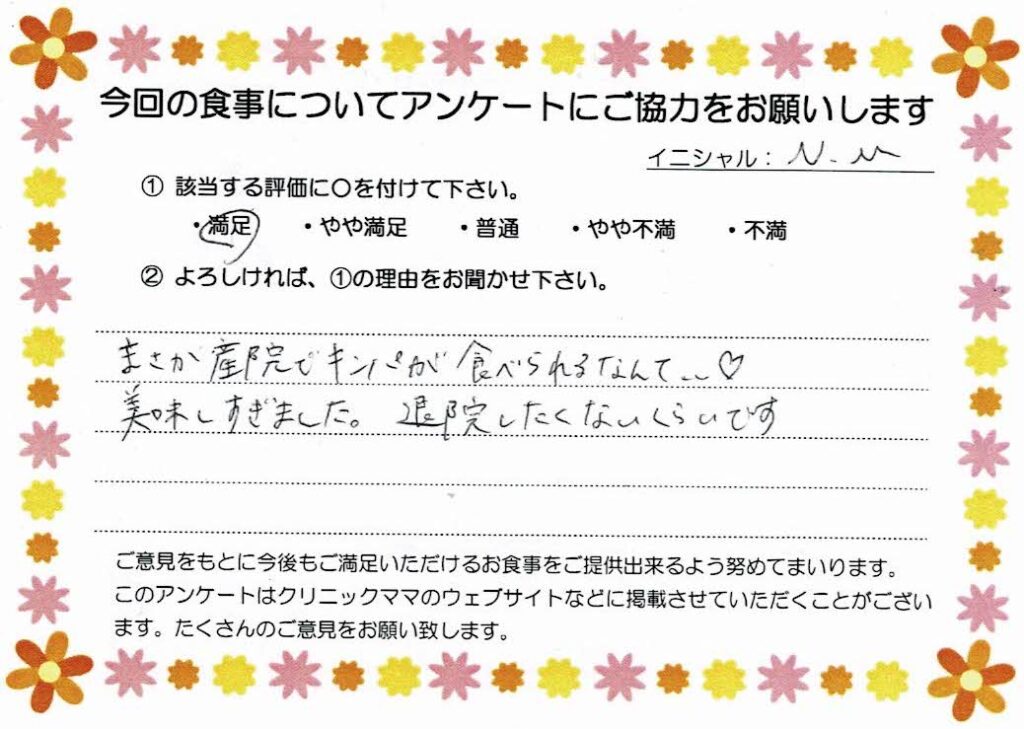 今回の食事についてアンケートにご協力をお願いします
イニシャル： N.M
① 該当する評価に〇を付けて下さい。
・満足 ・やや満足 ・普通 ・やや不満 ・不満
② よろしければ、①の理由をお聞かせ下さい。
まさか産院でキンパが食べられるなんて..♡
美味しすぎました。 退院したくないくらいです
ご意見をもとに今後もご満足いただけるお食事をご提供出来るよう努めてまいります。
このアンケートはクリニックママのウェブサイトなどに掲載させていただくことがござい
ます。たくさんのご意見をお願い致します。